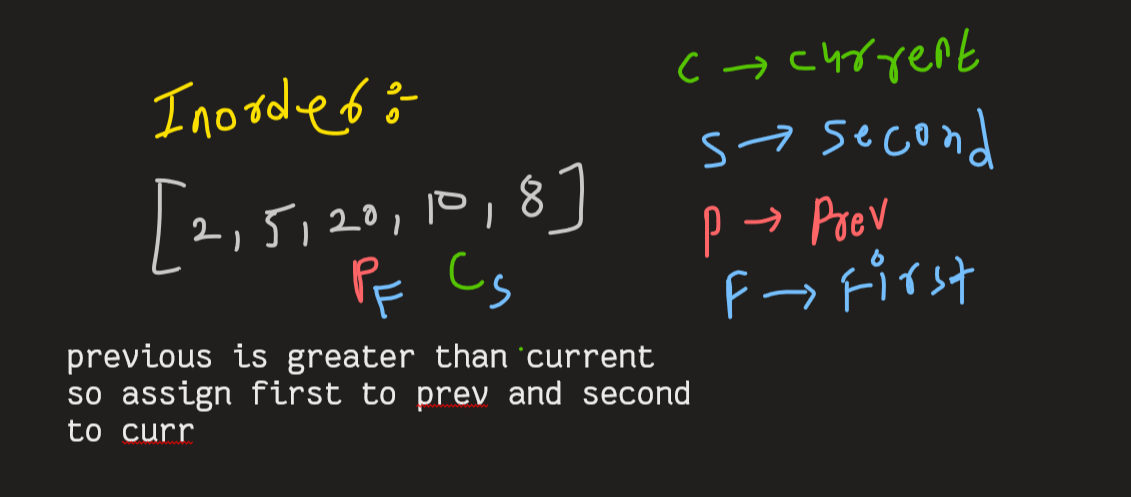 Inorder :-
[2, 5, 20, 10, 8]
P F C S
C → current
S → Second
P → Prev
F → First
previous is greater than current
so assign first to prev and second
to curr